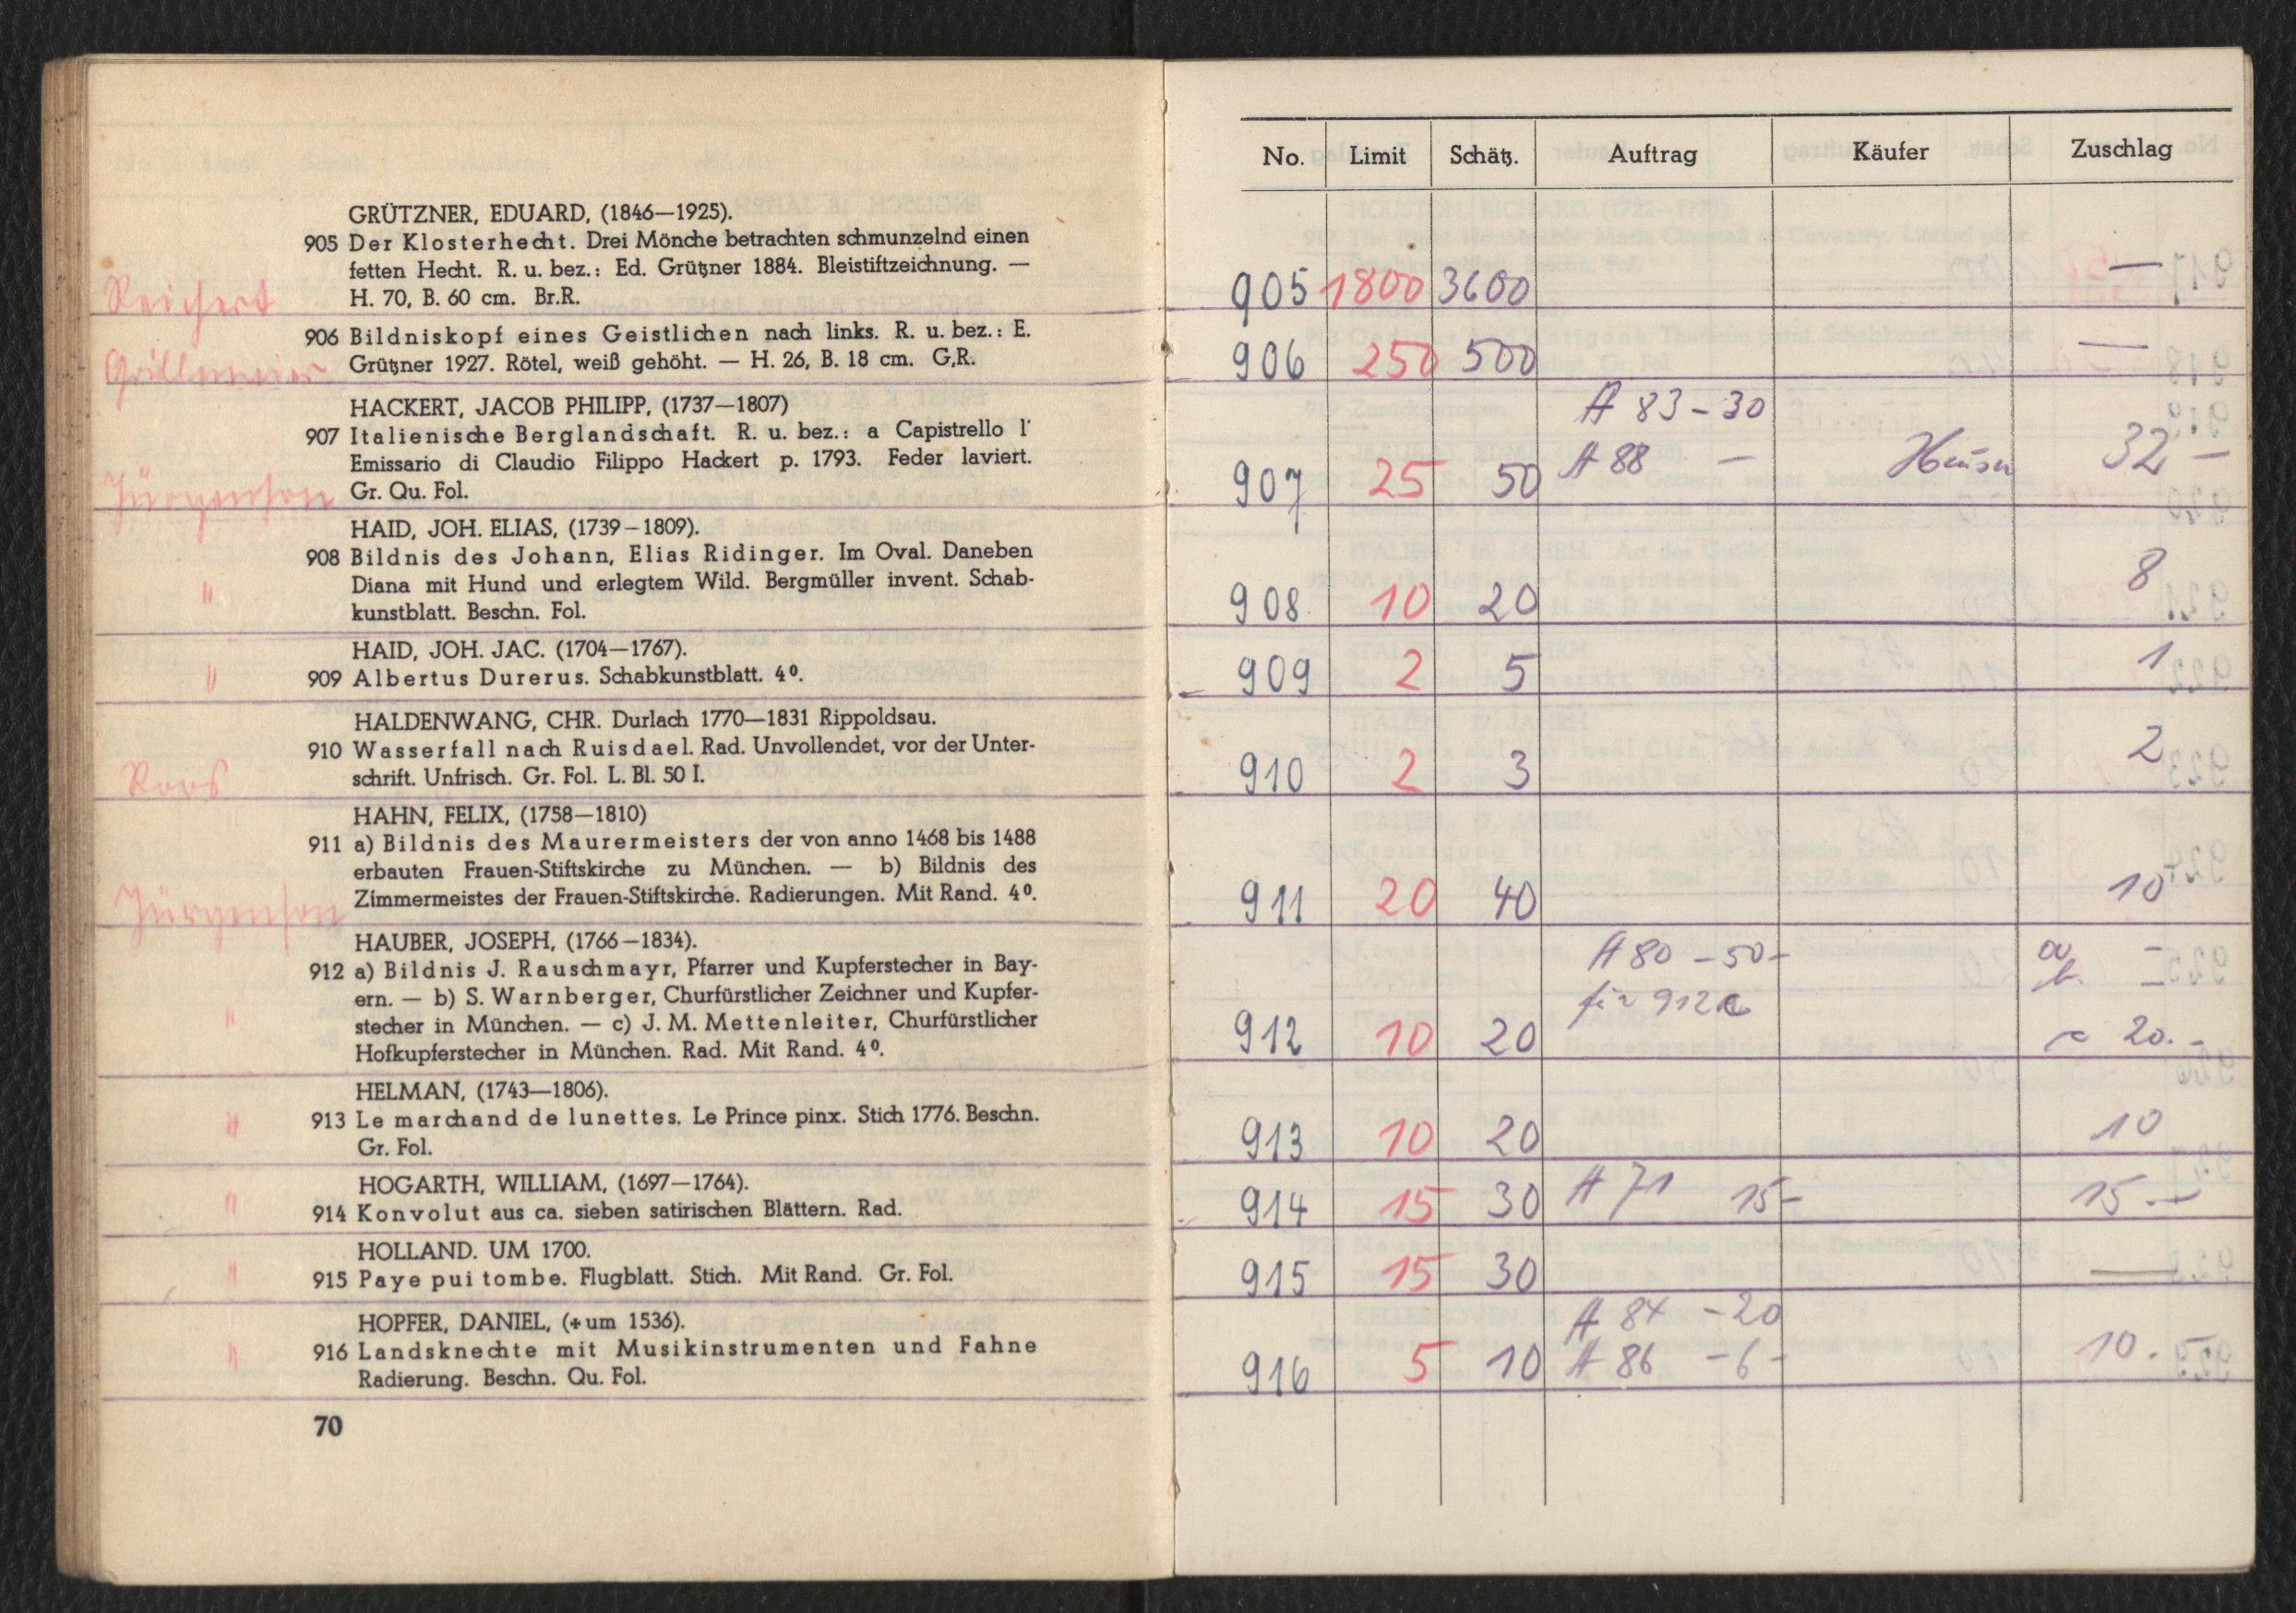 GRÜTZNER, EDUARD, (1846—1925).
905 Der Klosterhecht. Drei Mönche betrachten schmunzelnd einen
fetten Hecht. R. u. bez.: Ed. Grützner 1884. Bleistiftzeichnung. —
Reichert H. 70, B. 60 cm. Br.R.
906 Bildniskopf eines Geistlichen nach links. R. u. bez.: E.
Grillmeier Grützner 1927. Rötel, weiß gehöht. — H. 26, B. 18 cm. G,R.
HACKERT, JACOB PHILIPP, (1737—1807)
907 Italienische Berglandschaft. R. u. bez.: a Capistrello l'
Emissario di Claudio Filippo Hackert p. 1793. Feder laviert.
Jürgenson Gr. Qu. Fol.
HAID, JOH. ELIAS, (1739–1809).
908 Bildnis des Johann, Elias Ridinger. Im Oval. Daneben
" Diana mit Hund und erlegtem Wild. Bergmüller invent. Schab-
kunstblatt. Beschn. Fol.
HAID, JOH. JAC. (1704—1767).
" 909 Albertus Durerus. Schabkunstblatt. 4⁰.
HALDENWANG, CHR. Durlach 1770—1831 Rippoldsau.
910 Wasserfall nach Ruisdael. Rad. Unvollendet, vor der Unter-
Roos schrift. Unfrisch. Gr. Fol. L. Bl. 50 I.
HAHN, FELIX, (1758—1810)
911 a) Bildnis des Maurermeisters der von anno 1468 bis 1488
erbauten Frauen-Stiftskirche zu München. — b) Bildnis des
Jürgenson Zimmermeistes der Frauen-Stiftskirche. Radierungen. Mit Rand. 4⁰.
HAUBER, JOSEPH, (1766–1834).
912 a) Bildnis J. Rauschmayr, Pfarrer und Kupferstecher in Bay-
ern. — b) S. Warnberger, Churfürstlicher Zeichner und Kupfer-
" stecher in München. — c) J. M. Mettenleiter, Churfürstlicher
Hofkupferstecher in München. Rad. Mit Rand. 4⁰.
HELMAN, (1743—1806).
" 913 Le marchand de lunettes. Le Prince pinx. Stich 1776. Beschn.
Gr. Fol.
HOGARTH, WILLIAM, (1697—1764).
" 914 Konvolut aus ca. sieben satirischen Blättern. Rad.
HOLLAND. UM 1700.
" 915 Paye pui tombe. Flugblatt. Stich. Mit Rand. Gr. Fol.
HOPFER, DANIEL, (+um 1536).
" 916 Landsknechte mit Musikinstrumenten und Fahne
Radierung. Beschn. Qu. Fol.
70
No. Limit Schätz. Auftrag Käufer Zuschlag
905 1800 3600 —
906 250 500 —
A 83 – 30
907 25 50 A 88 — 32 —
908 10 20 8
909 2 5 1
910 2 3 2
911 20 40 10
A 80 – 50 – a –
für 912c b. –
912 10 20 c 20. –
913 10 20 10
914 15 30 A 71 15– 15.–
915 15 30 —
A 84 – 20
916 5 10 A 86 – 6 – 10.